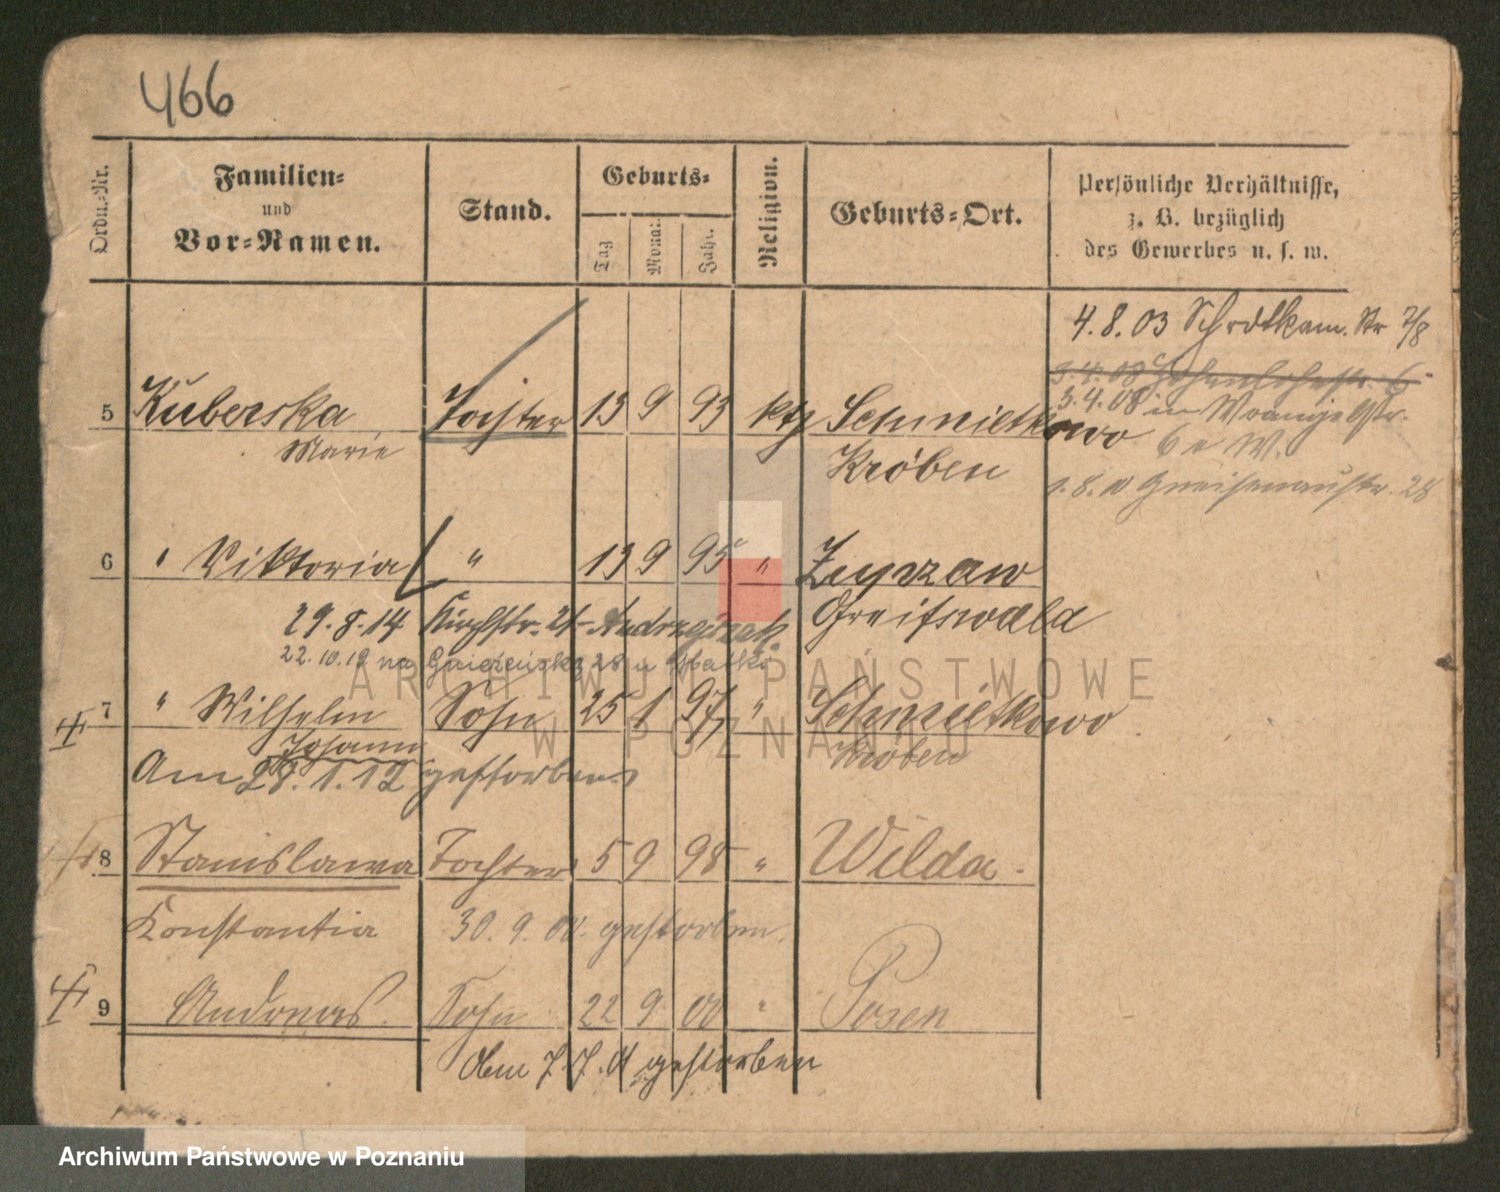 466
Ordn.-Nr.
Familien-
und
Vor-Namen.
Stand.
Geburts-
Tag
Monat
Jahr.
Religion.
Geburts-Ort.
Persönliche Verhältnisse,
z. B. bezüglich
des Gewerbes u. s. w.
4.8.03 Str 7/8
3.4.08 6
3.4.08 in
6 W.
5 Kuberska Tochter 13 9 93 kth Schmietkowo
Marie Kröben
1.8.10 Gneisenaustr. 28
6 " Viktoria " 13 9 95 "
Greifswald
29.8.14 Kirchstr. Andrzejczak
22.10.19 na 28 u Matki
7 " Wilhelm Sohn 25 1 97 " Schmietkowo
Johann Kröben
Am 28.1.12 gestorben
8 Stanislawa Tochter 5 9 98 " Wilda.
Konstantia 30.9.00. gestorben.
9 Andreas. Sohn 22 9 00 " Posen
Am 7.7.01 gestorben
ARCHIWUM PAŃSTWOWE
W POZNANIU
Archiwum Państwowe w Poznaniu